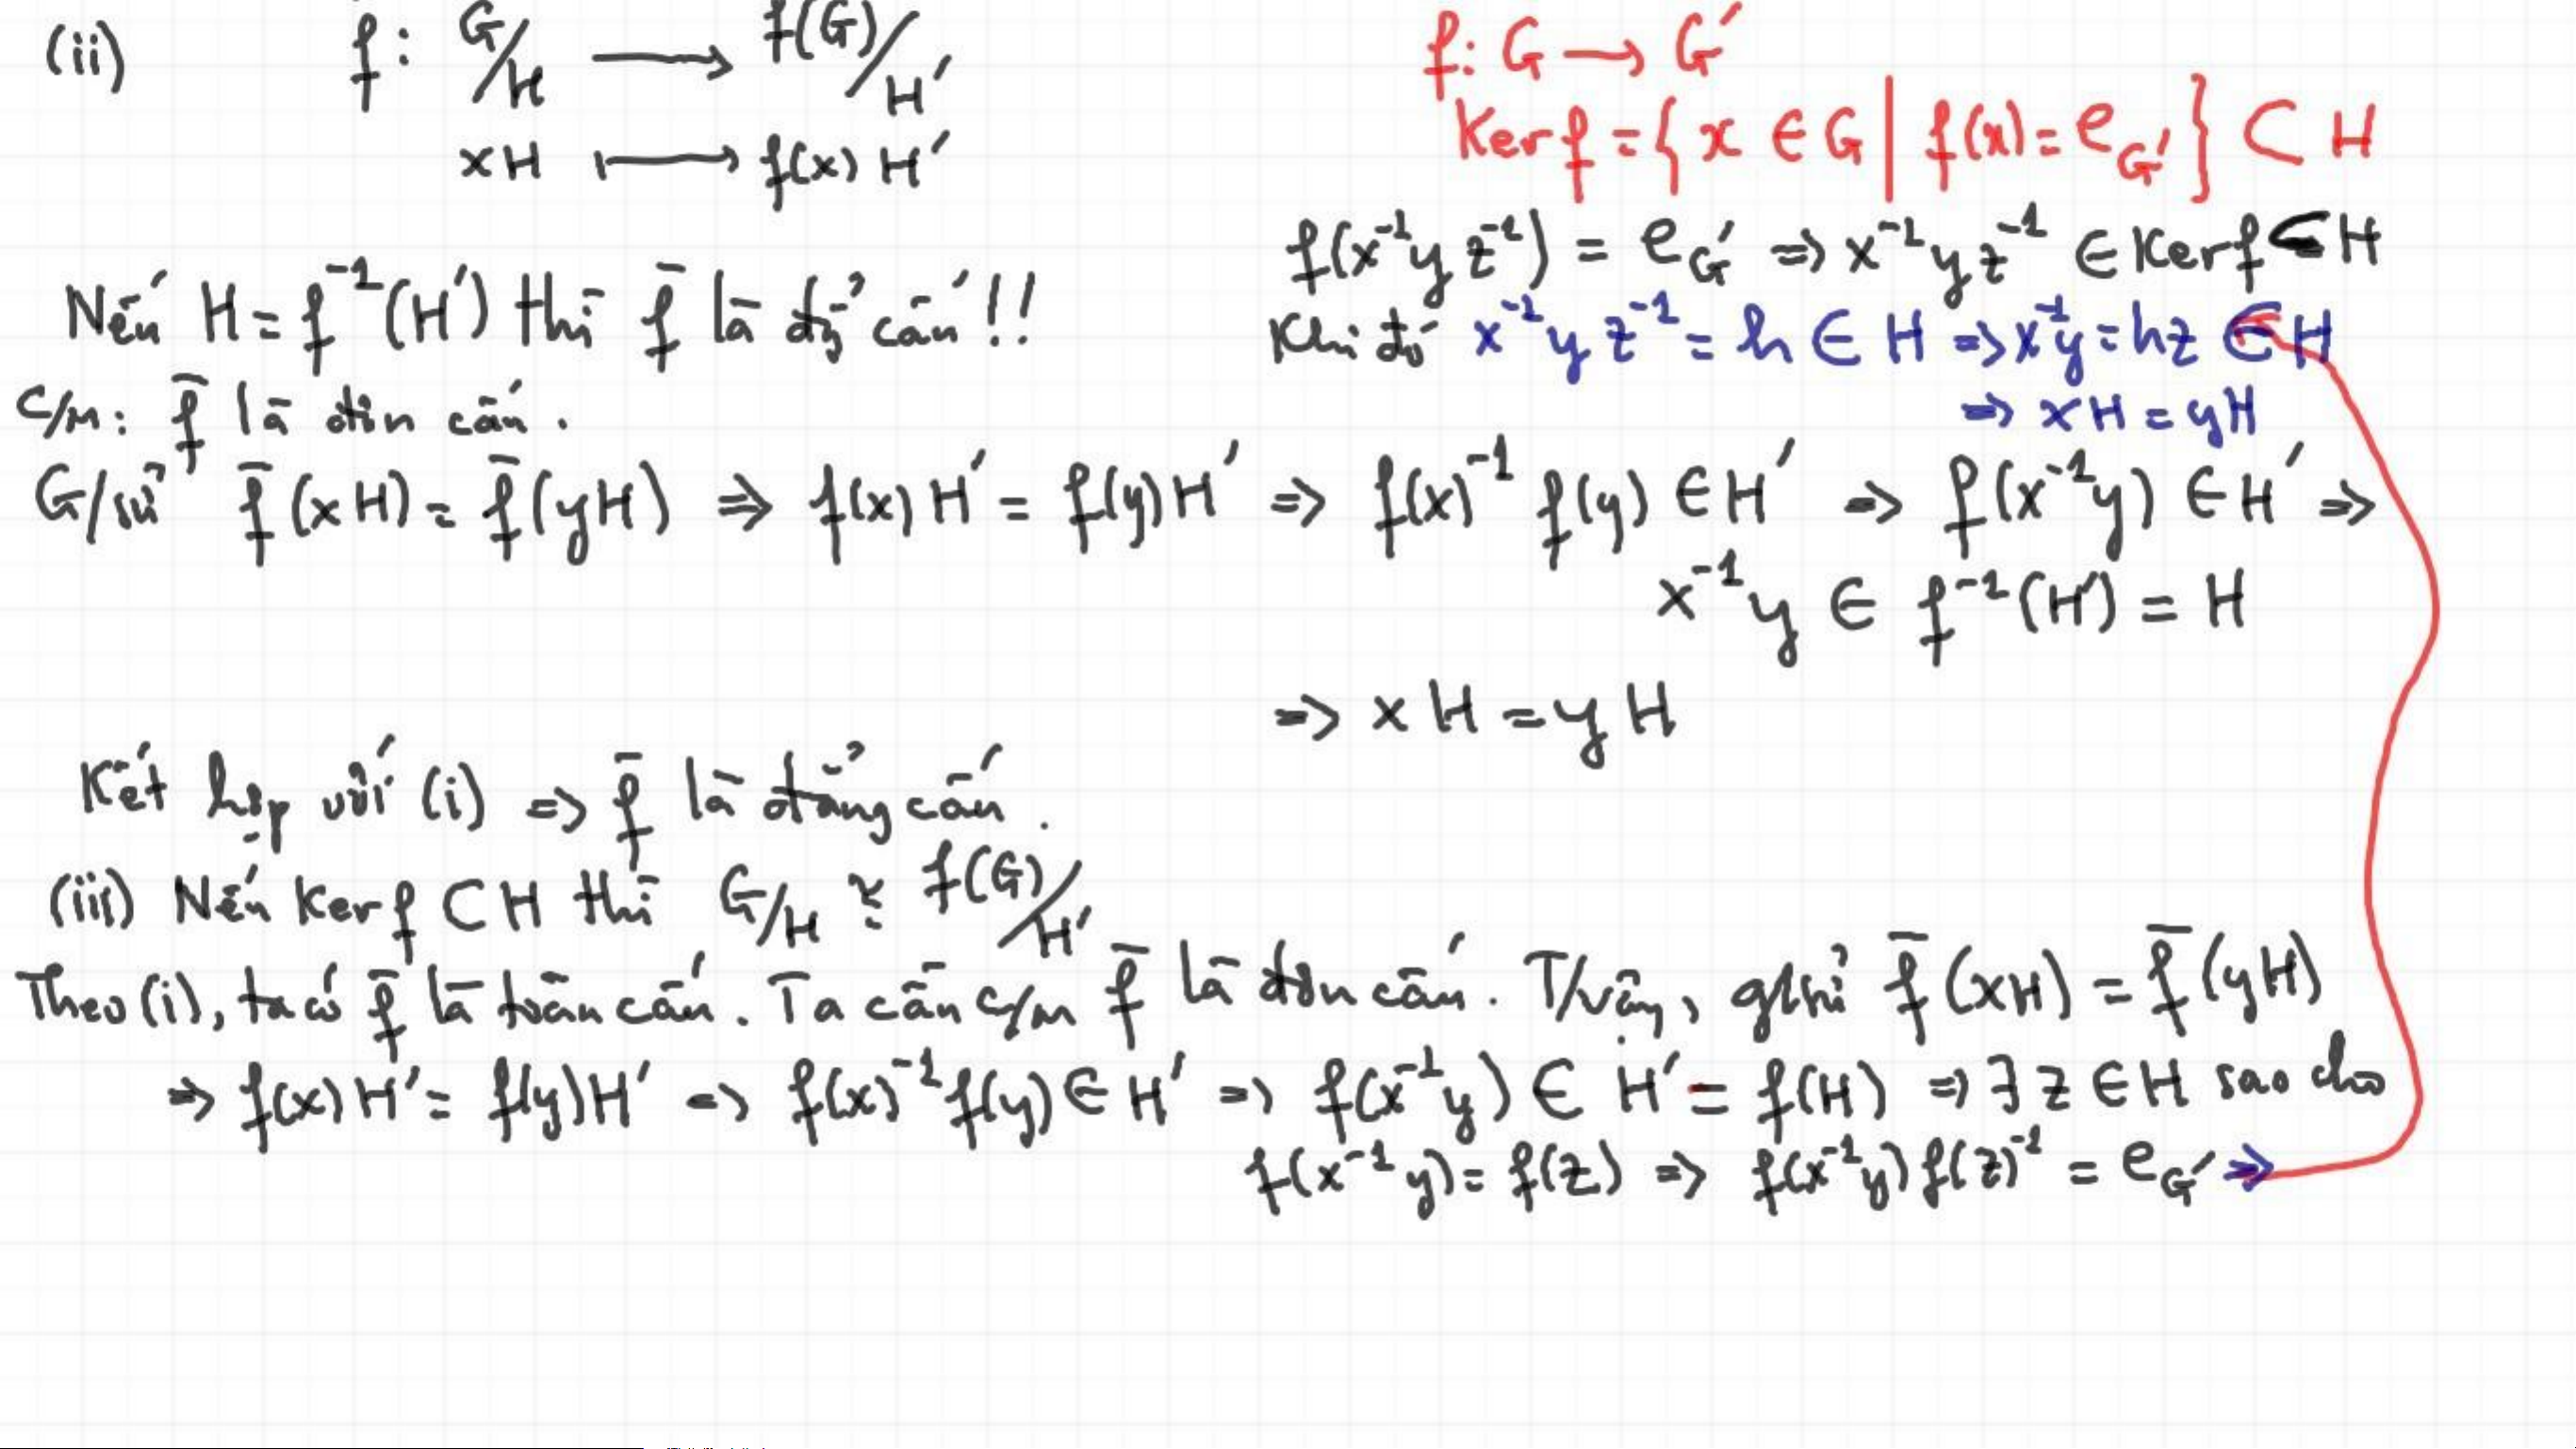 (ii) f: G/H ⟶ f(G)/H'
xH ⟼ f(x) H'
f: G → G'
Ker f = { x ∈ G | f(x) = e_G' } ⊂ H
f(x⁻¹y z⁻¹) = e_G' ⇒ x⁻¹y z⁻¹ ∈ Ker f ⊂ H
Khi đó x⁻¹y z⁻¹ = h ∈ H ⇒ x⁻¹y = hz ∈ H
⇒ xH = yH
Nếu H = f⁻¹(H') thì f̄ là đ/ cấu !!
C/m: f̄ là đơn cấu.
G/sử f̄(xH) = f̄(yH) ⇒ f(x)H' = f(y)H' ⇒ f(x)⁻¹ f(y) ∈ H' ⇒ f(x⁻¹y) ∈ H' ⇒
x⁻¹y ∈ f⁻¹(H') = H
⇒ xH = yH
Kết hợp với (i) ⇒ f̄ là đẳng cấu.
(iii) Nếu Ker f ⊂ H thì G/H ≅ f(G)/H'
Theo (i), ta có f̄ là toàn cấu. Ta cần c/m f̄ là đơn cấu. T/vậy, g/sử f̄(xH) = f̄(yH)
⇒ f(x)H' = f(y)H' ⇒ f(x)⁻¹f(y) ∈ H' ⇒ f(x⁻¹y) ∈ H' = f(H) ⇒ ∃ z ∈ H sao cho
f(x⁻¹y) = f(z) ⇒ f(x⁻¹y) f(z)⁻¹ = e_G' ⇒